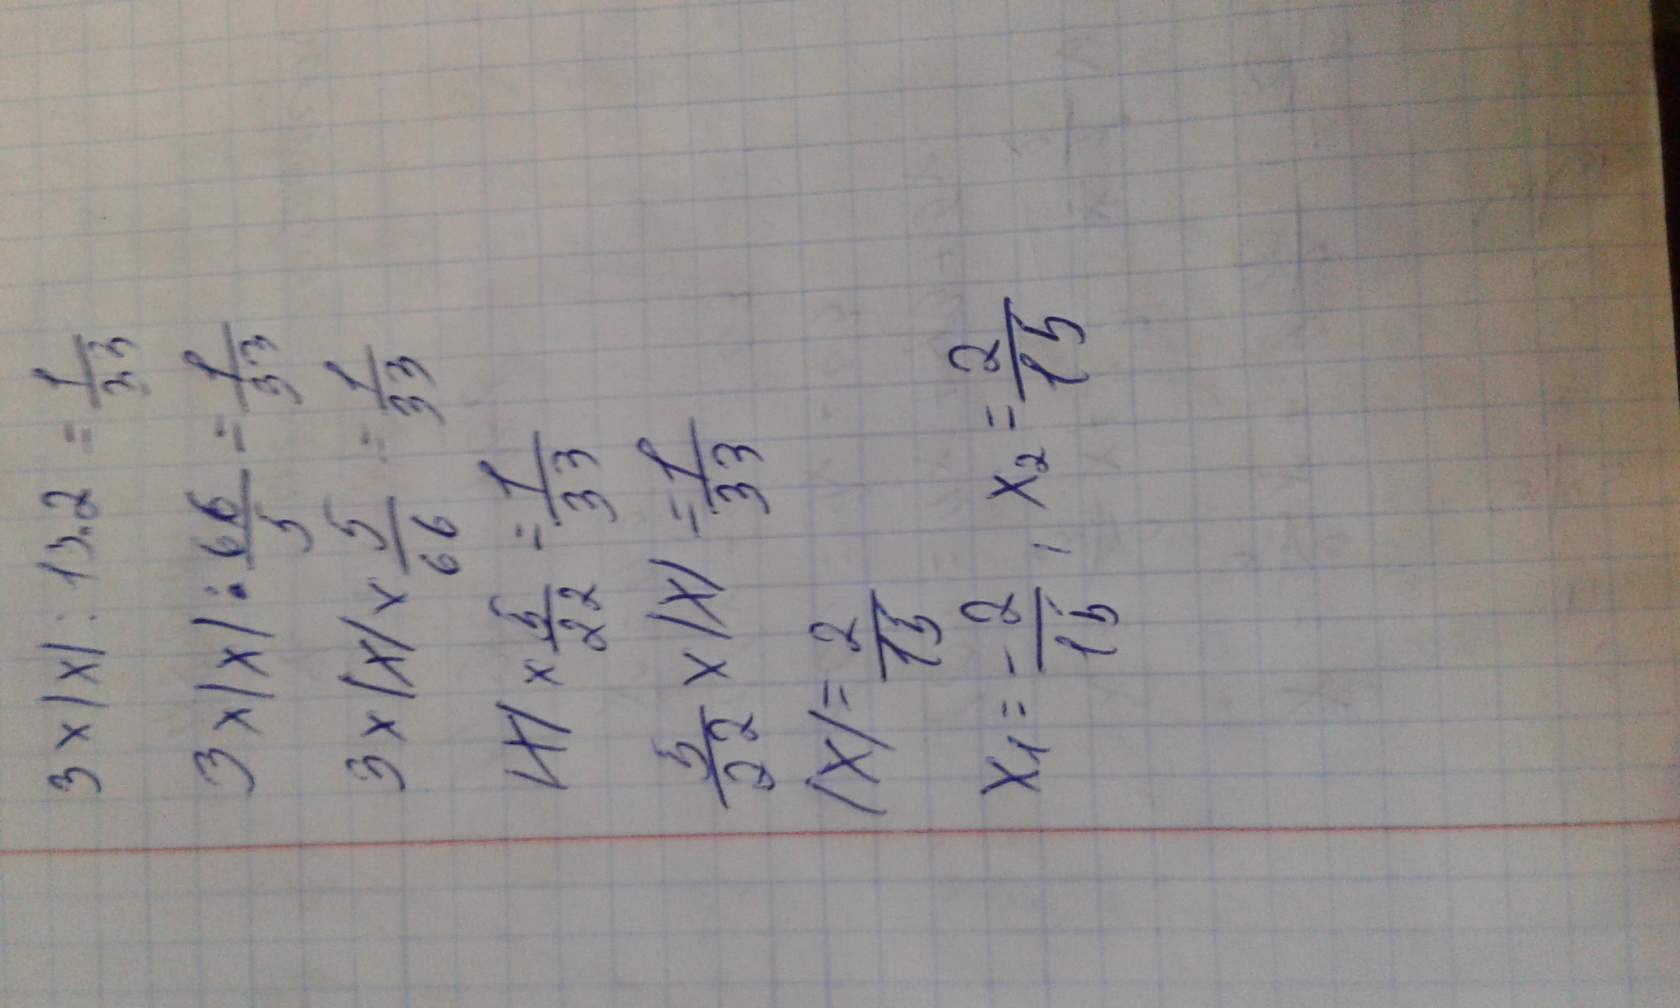 3 x |x| : 13.2 = 1/33
3 x |x| : 66/5 = 1/33
3 x |x| x 5/66 = 1/33
|x| x 5/22 = 1/33
5/22 x |x| = 1/33
|x| = 2/15
x₁ = - 2/15 , x₂ = 2/15